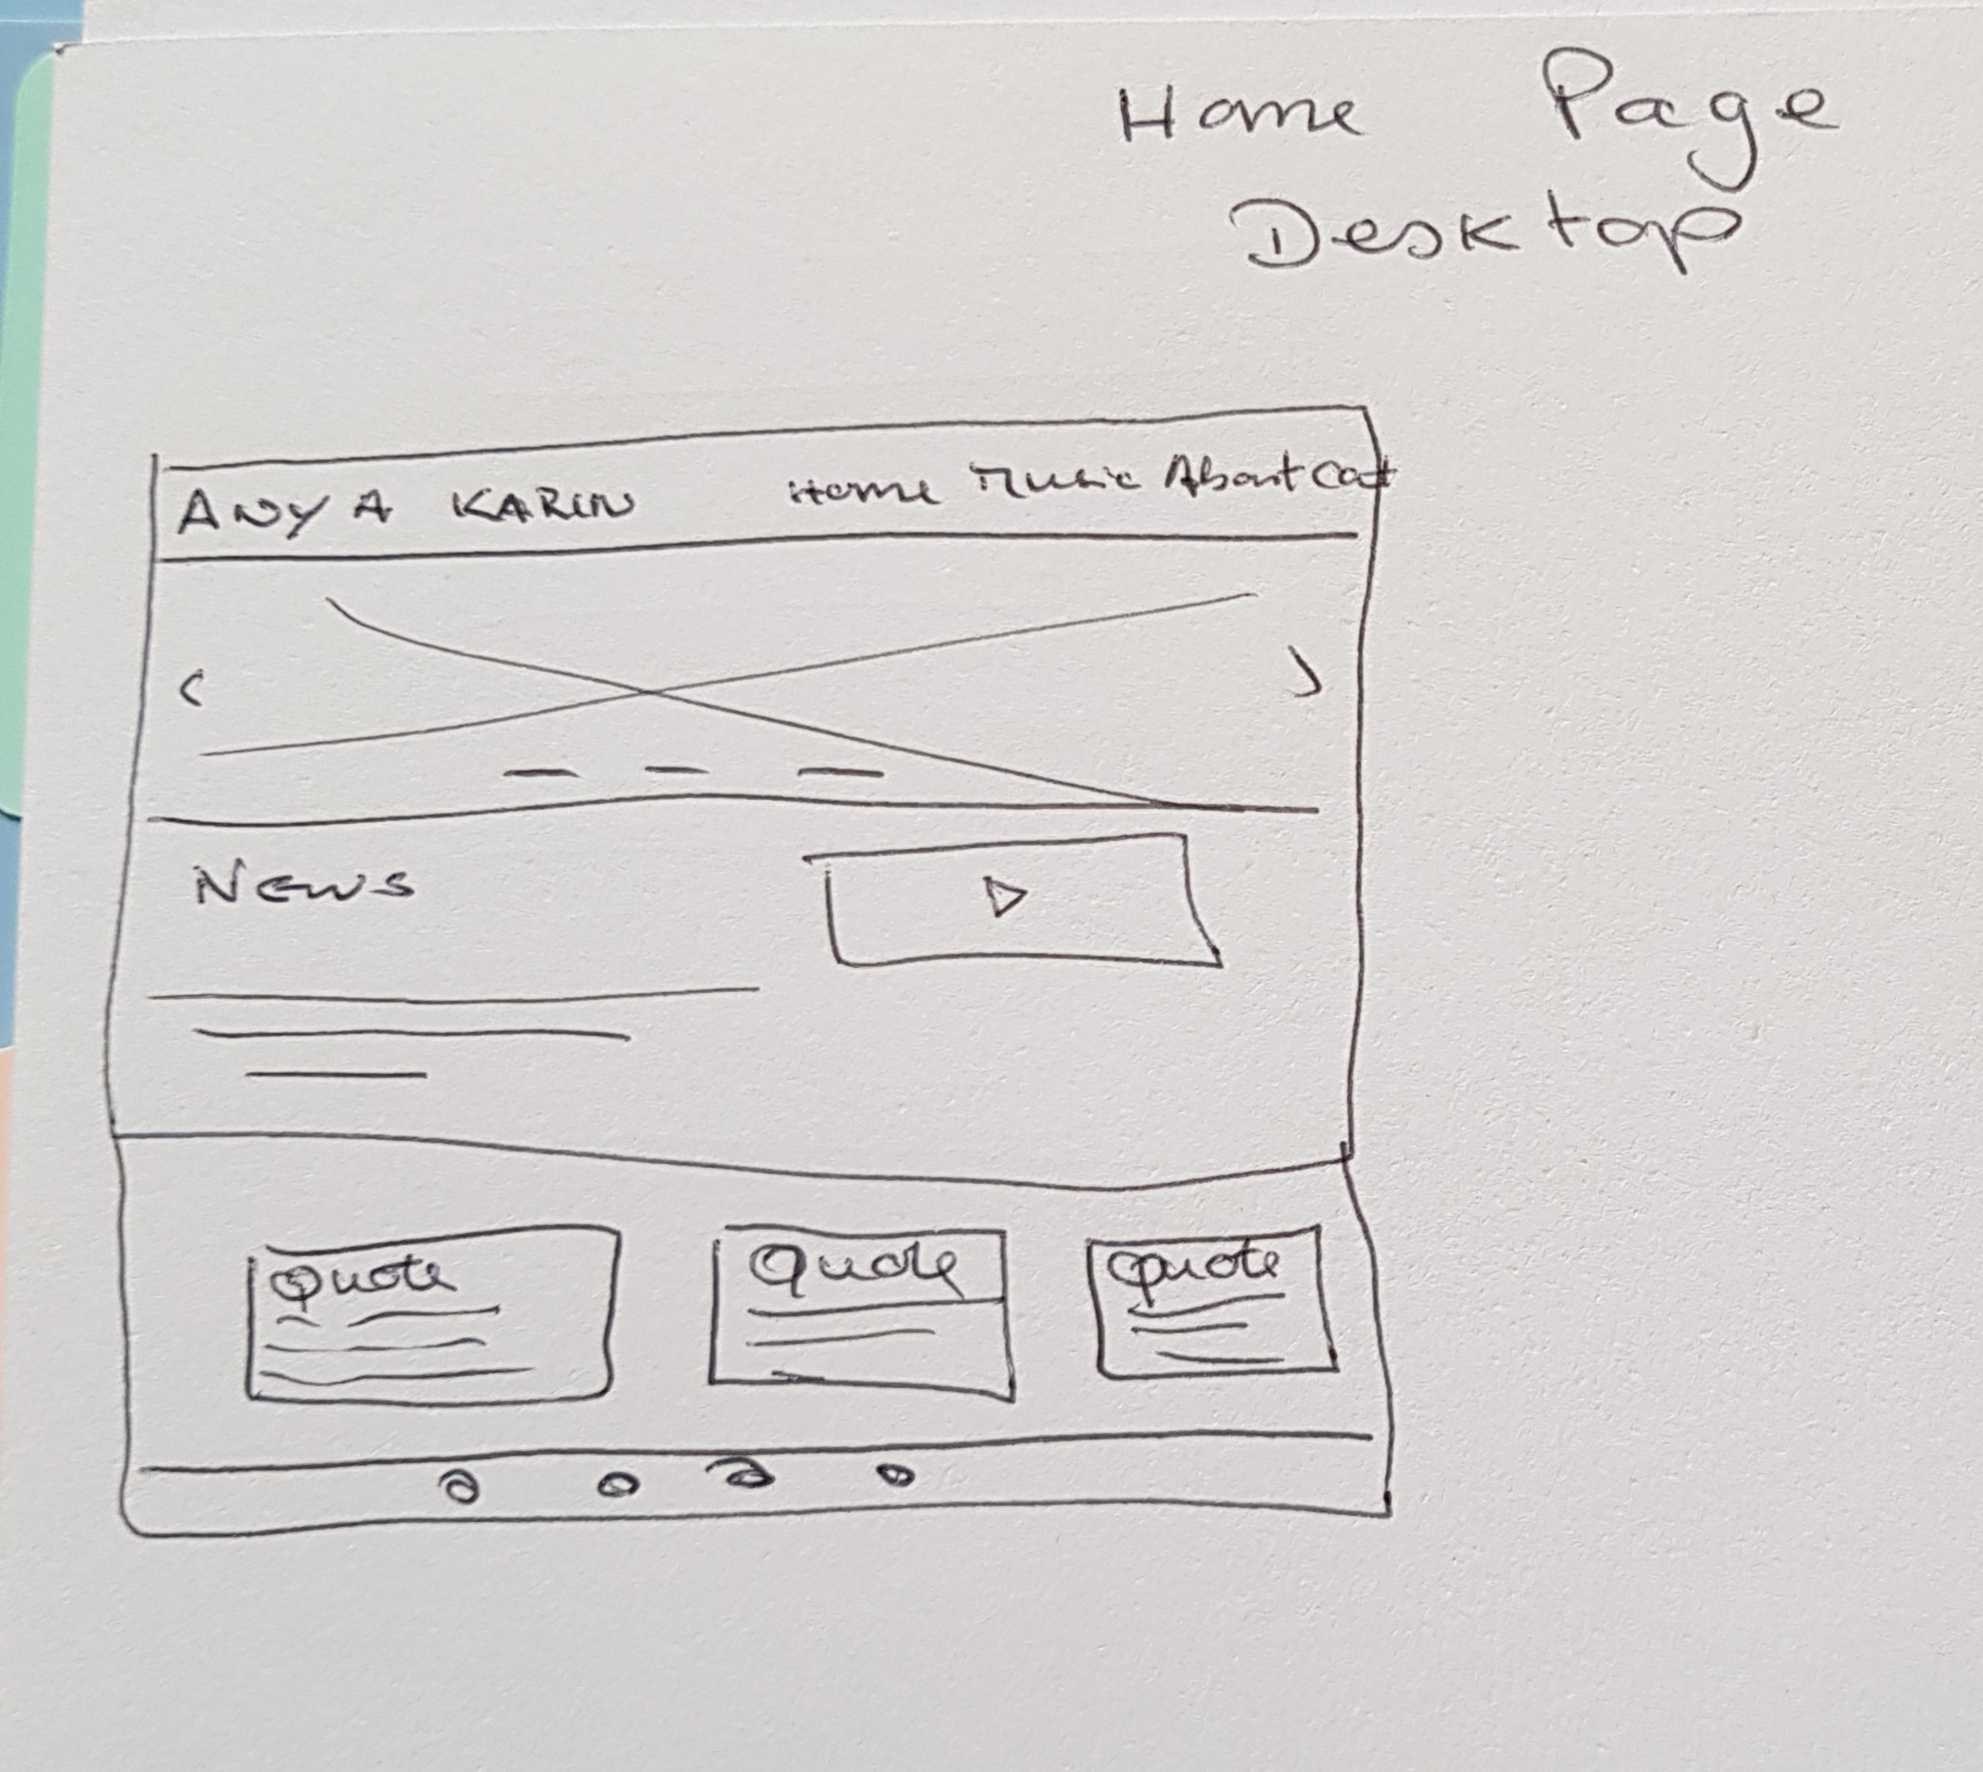 Home Page
Desktop
ANYA KARIN Home Music About
News
Quote Quote Quote